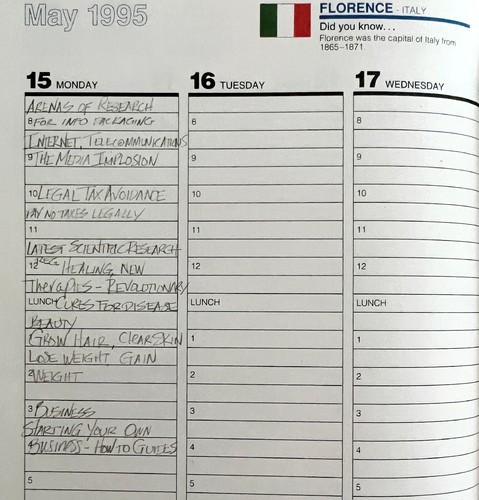 May 1995
FLORENCE - ITALY
Did you know...
Florence was the capital of Italy from
1865-1871.
15 MONDAY
ARENAS OF RESEARCH
8 FOR INFO PACKAGING
INTERNET, TELECOMMUNICATIONS
9 THE MEDIA IMPLOSION
10 LEGAL TAX AVOIDANCE
PAY NO TAXES LEGALLY
11
LATEST SCIENTIFIC RESEARCH
12 REG HEALING, NEW
Therapies - REVOLUTIONARY
LUNCH CURES FOR DISEASE
BEAUTY
1 GROW HAIR, CLEAR SKIN
LOSE WEIGHT GAIN
2 WEIGHT
3 BUSINESS
STARTING YOUR OWN
4 BUSINESS - HOW TO GUIDES
5
16 TUESDAY
8
9
10
11
12
LUNCH
1
2
3
4
5
17 WEDNESDAY
8
9
10
11
12
LUNCH
1
2
3
4
5